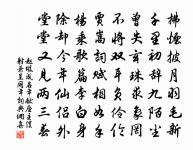 拂煙披月羽毛新
千里初辭九陌塵
曾失玄珠求象罔
不將雙耳負伶倫
賈嵩詞賦相如手
楊乘歌篇李白身
除却今年仙侶外
堂堂又見兩三春
趙嘏成名年獻座主僕
射兼呈同年 詞典網集